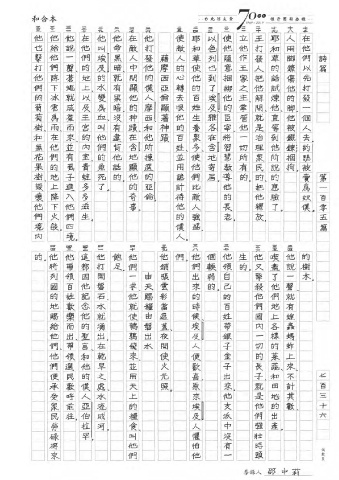 和合本
70
詩篇 第一百零五篇 七百三十六
在他們以先打發一個人去約瑟被賣為奴僕
人用腳鐐傷他的腳他被鐵鍊捆拘
耶和華的話試煉他直等到他所說的應驗了
王打發人把他解開就是治理眾民的把他釋放
立他作王家之主掌管他一切所有的
使他隨意捆綁他的臣宰將智慧教導他的長老
以色列也到了埃及雅各在含地寄居
耶和華使他的百姓生養眾多使他們比敵人強盛
使敵人的心轉去恨他的百姓並用詭計待他的僕人
藉摩西亞倫顯著神蹟
他打發他的僕人摩西和他所揀選的亞倫
在敵人中間顯他的神蹟在含地顯他的奇事
他命黑暗就有黑暗沒有違背他話的
他叫埃及的水變為血叫他們的魚死了
在他們的地上以及王宮的內室青蛙多多滋生
他說一聲蒼蠅就成群而來並有虱子進入他們四境
他給他們降下冰雹為雨在他們的地上降下火焰
他也擊打他們的葡萄樹和無花果樹毀壞他們境內
的樹木
他說一聲就有蝗蟲螞蚱上來不計其數
喫盡了他們地上各樣的菜蔬和田地的出產
他又擊殺他們國內一切的長子就是他們強壯時頭
生的
他領自己的百姓帶銀子金子出來他支派中沒有一
個軟弱的
他們出來的時候埃及人便歡喜原來埃及人懼怕他
們
他鋪張雲彩當遮蓋夜間使火光照
由天賜糧由磐出水
他們一求他就使鵪鶉飛來並用天上的糧食叫他們
飽足
他打開磐石水就湧出在乾旱之處水流成河
這都因他記念他的聖言和他的僕人亞伯拉罕
他帶領百姓歡樂而出帶領選民歡呼前往
他將列國的地賜給他們他們便承受眾民勞碌得來
的
書寫人 邵中莉